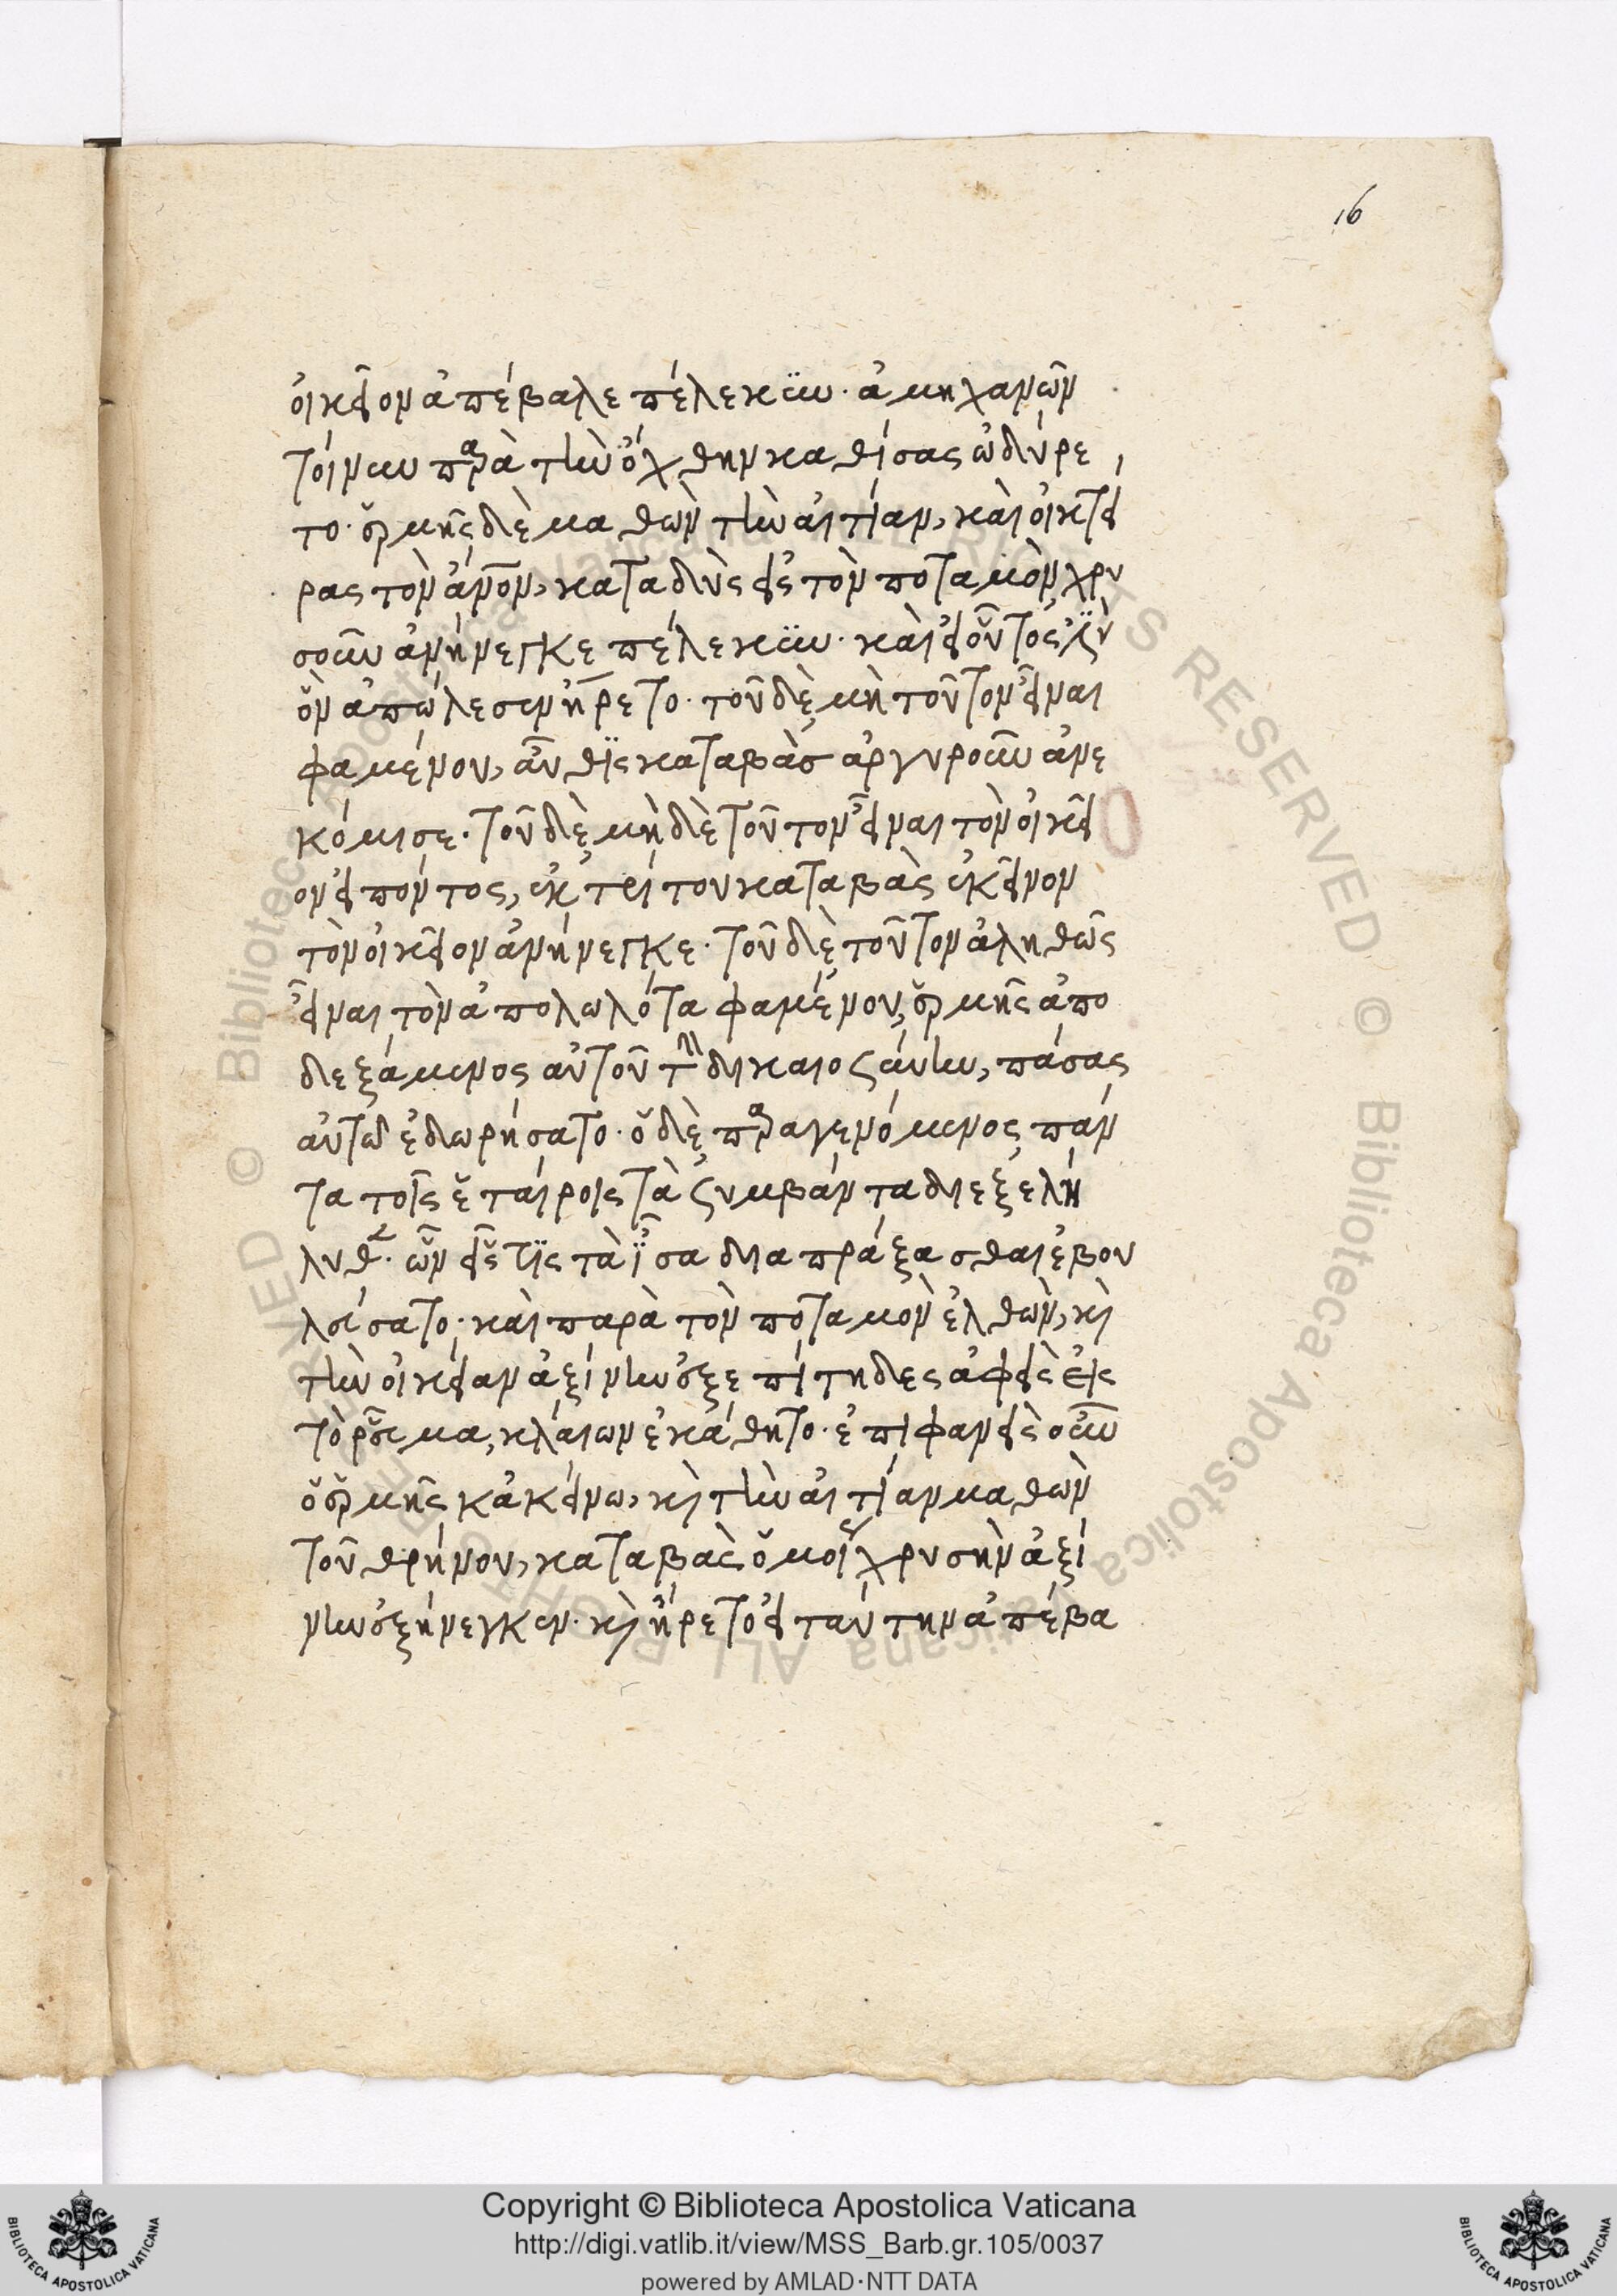 16
οἰκεῖον ἀπέβαλε πέλεκυν· ἀμηχανῶν
τοίνυν παρὰ τὴν ὄχθην καθίσας ὠδύρε
το· ἑρμῆς δὲ μαθὼν τὴν αἰτίαν, καὶ οἰκτεί
ρας τὸν ἄνον, καταδὺς εἰς τὸν ποταμὸν χρυ
σοῦν ἀνήνεγκε πέλεκυν· καὶ εἰ οὗτός ἐστιν
ὃν ἀπώλεσεν ἤρετο· τοῦ δὲ μὴ τοῦτον εἶναι
φαμένου, αὖθις καταβὰς ἀργυροῦν ἀνε
κόμισε· τοῦ δὲ μηδὲ τοῦτον εἶναι τὸν οἰκεῖ
ον εἰπόντος, ἐκ τρίτου καταβὰς ἐκεῖνον
τὸν οἰκεῖον ἀνήνεγκε· τοῦ δὲ τοῦτον ἀληθῶς
εἶναι τὸν ἀπολωλότα φαμένου, ἑρμῆς ἀπο
δεξάμενος αὐτοῦ τὴν δικαιοσύνην, πάσας
αὐτῶ ἐδωρήσατο· ὁ δὲ παραγενόμενος πάν
τα τοῖς ἑταίροις τὰ συμβάντα διεξελή
λυθε· ὧν εἷς τις τὰ ἴσα διαπράξασθαι ἐβου
λεύσατο· καὶ παρὰ τὸν ποταμὸν ἐλθὼν, καὶ
τὴν οἰκείαν ἀξίνην ἐξεπίτηδες ἀφεὶς εἰς
τὸ ῥεῦμα, κλαίων ἐκάθητο· ἐπιφανεὶς οὖν
ὁ ἑρμῆς κἀκείνω, καὶ τὴν αἰτίαν μαθὼν
τοῦ θρήνου, καταβὰς ὁμοίως χρυσῆν ἀξί
νην ἐξήνεγκεν· καὶ ἤρετο εἰ ταύτην ἀπέβα
Copyright © Biblioteca Apostolica Vaticana
http://digi.vatlib.it/view/MSS_Barb.gr.105/0037
powered by AMLAD·NTT DATA
BIBLIOTECA APOSTOLICA VATICANA
BIBLIOTECA APOSTOLICA VATICANA
© Biblioteca Apostolica Vaticana ALL RIGHTS RESERVED © Biblioteca Apostolica Vaticana ALL RIGHTS RESERVED